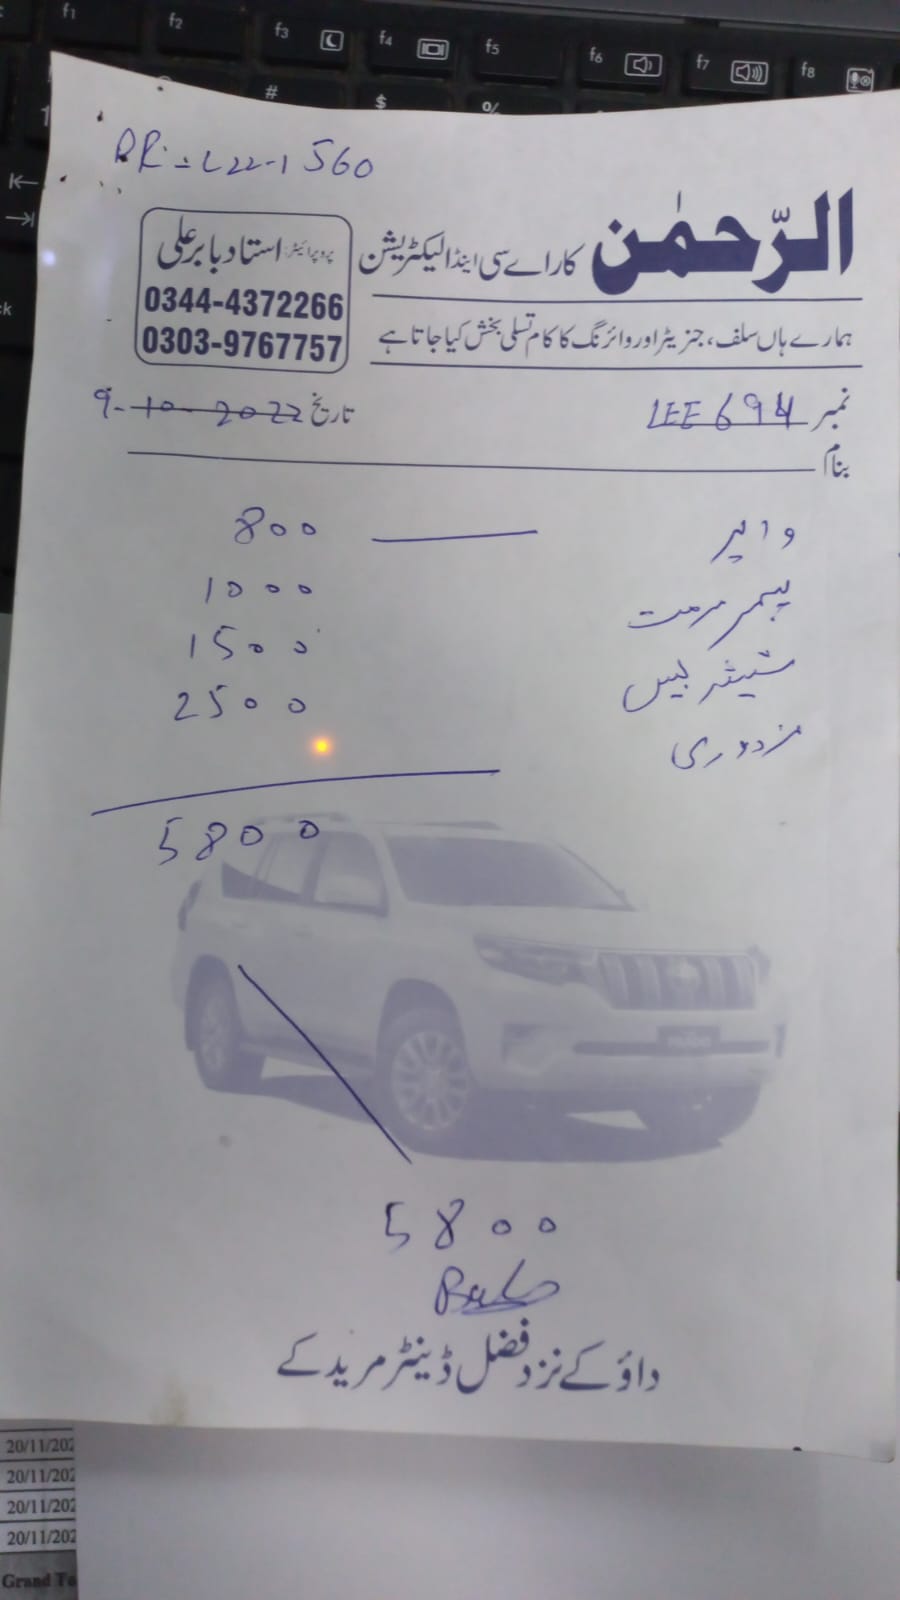 RR:=L22-1560
الرّحمٰن کار اے سی اینڈ الیکٹریشن
پروپرائیٹر: استاد بابر علی
0344-4372266
0303-9767757
ہمارے ہاں سلف، جنریٹر اور وائرنگ کا کام تسلی بخش کیا جاتا ہے
نمبر LEE 694 تاریخ 9-10-2022
بنام
وائر 800
پمپر مرمت 1000
1500
مزدوری 2500
5800
5800
داؤ کے نزد فضل ڈینٹر مریدکے
f1 f2 f3 f4 f5 f6 f7 f8
# $ %
20/11/202
20/11/202
20/11/202
20/11/202
Grand To